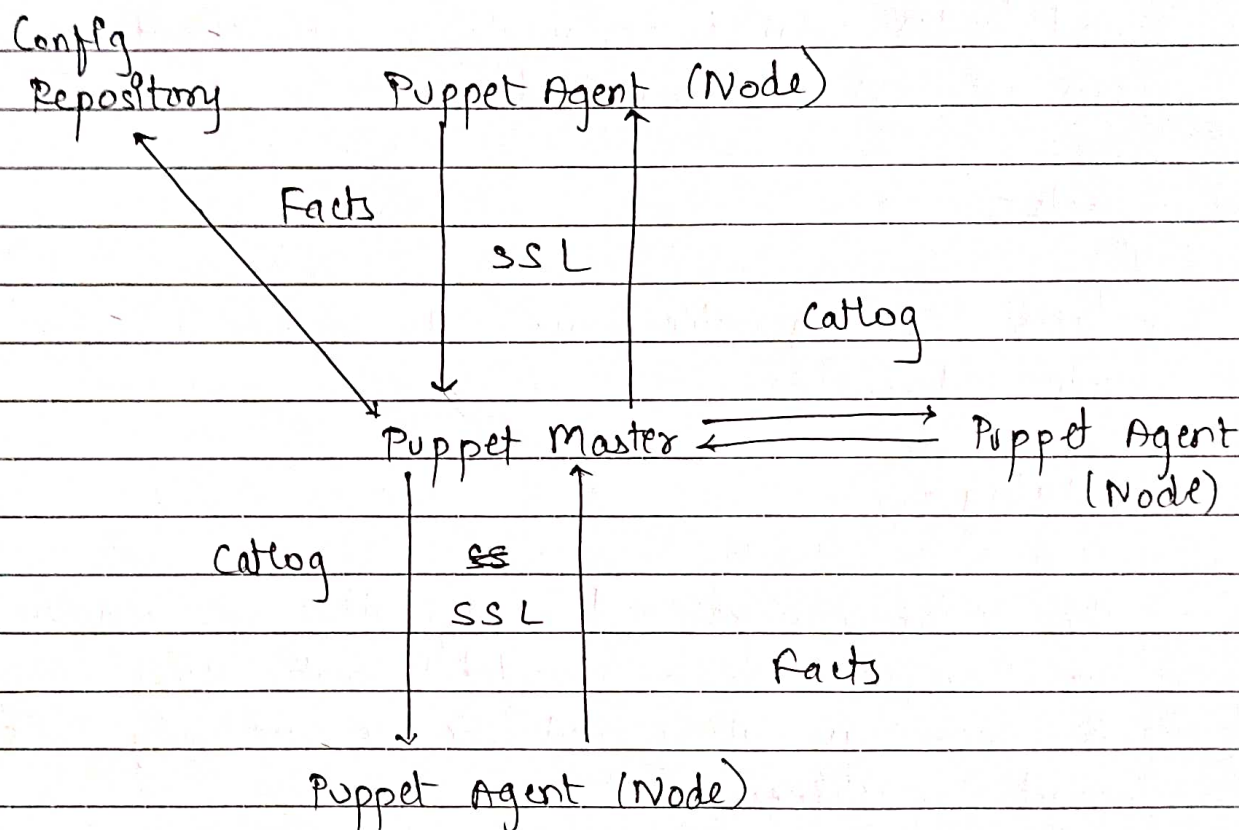 Config
Repository
Puppet Agent (Node)
Facts
SSL
Catlog
Puppet Master
Puppet Agent
(Node)
Catlog
SS
SSL
Facts
Puppet Agent (Node)